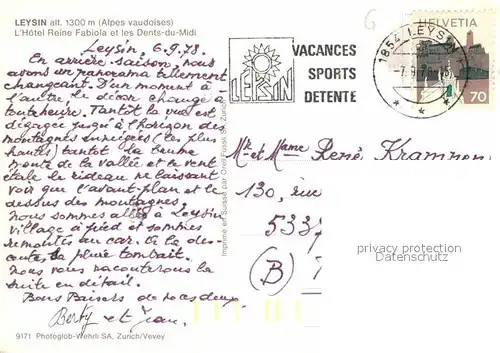 LEYSIN alt. 1300 m (Alpes vaudoises)
L'Hôtel Reine Fabiola et les Dents-du-Midi
Leysin, 6.9.78.
En arrière-saison, nous
avons un panorama tellement
changeant. D'un moment à
l'autre, le décor change à
toute heure. Tantôt la vue est
dégagée jusqu'à l'horizon des
montagnes enneigées (les plus
hautes) tantôt la brume
monte de la vallée et le vent
étale le rideau ne laissant
voir que l'avant-plan et le
dessus des montagnes.
Nous sommes allés à Leysin
village à pied et sommes
remontés au car. A la des-
cente, la pluie tombait.
Nous vous raconterons la
suite en détail.
Bons Baisers de nous deux
Berty et Jean.
9171 Photoglob-Wehrli SA, Zurich/Vevey
Imprimé en Suisse par Orell Füssli SA, Zurich
LEYSIN
VACANCES
SPORTS
DETENTE
1854 LEYSIN
HELVETIA
70
Mr et Mame René Krammon
130, rue
5337
(B)
privacy protection
Datenschutz